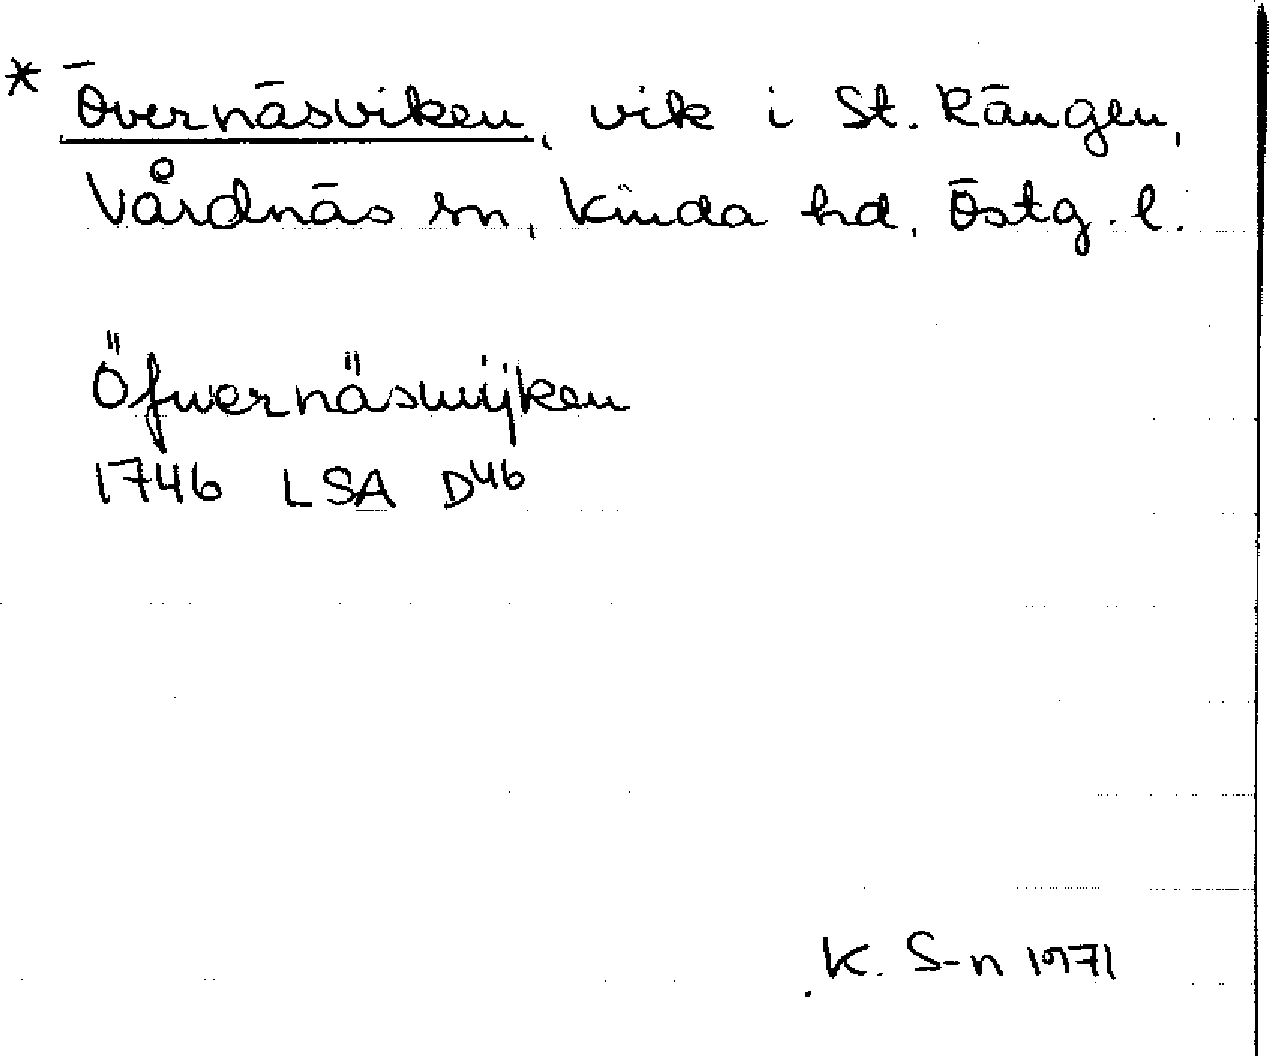 * Övernäsviken, vik i St. Rängen,
Vårdnäs sn, Kinda hd, Östg. l.
Öfwernäswijken
1746 LSA D46
K. S-n 1971